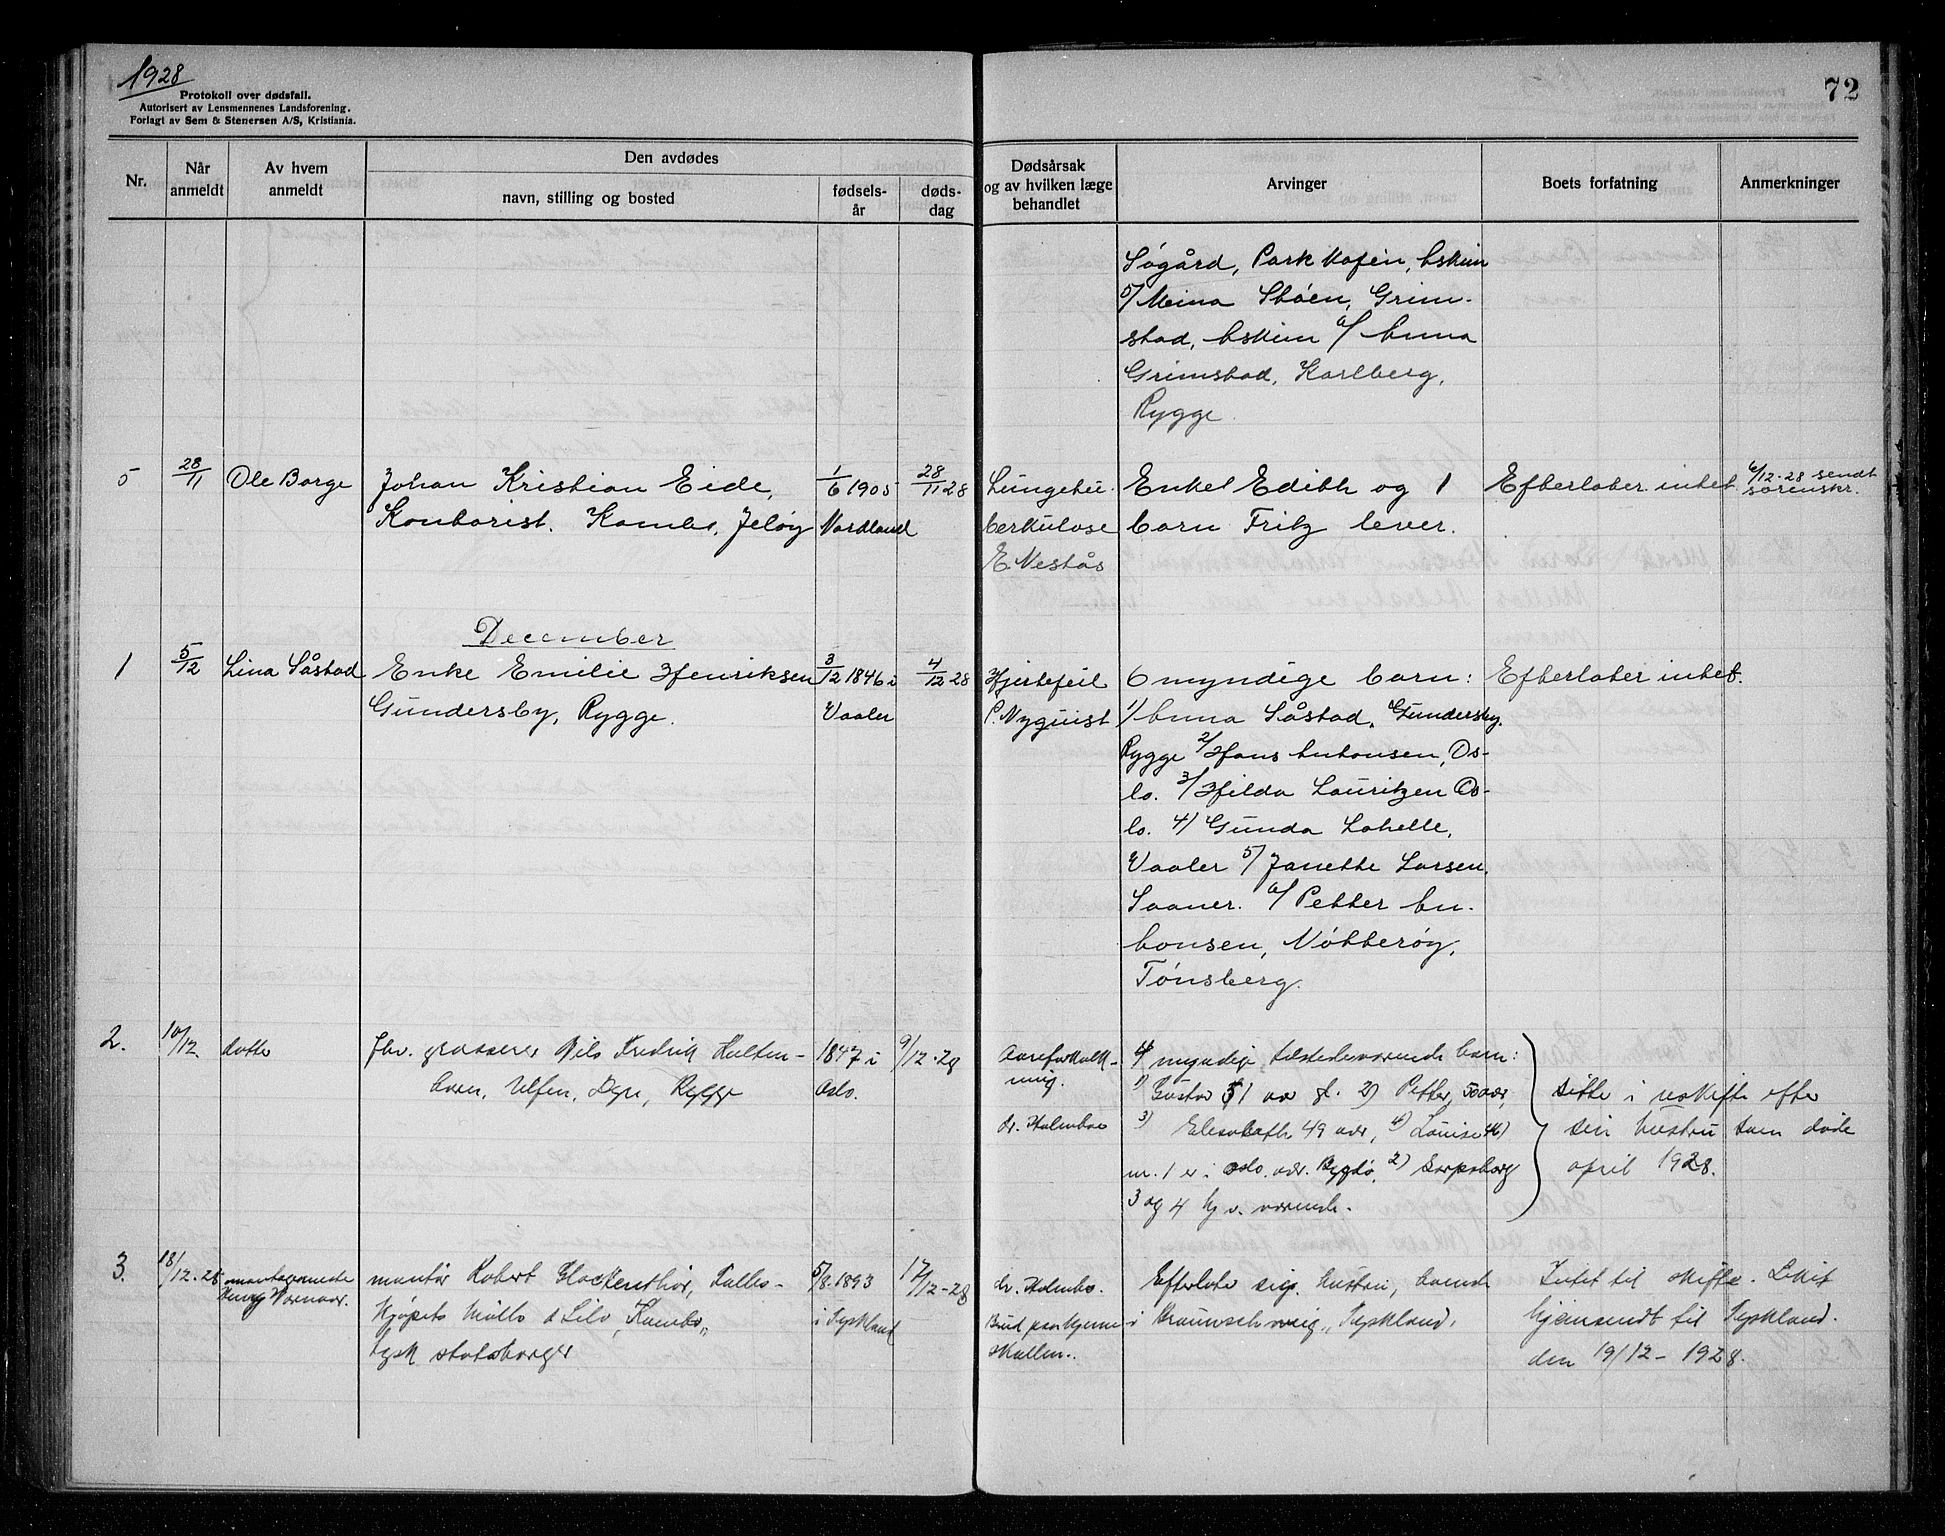 1928
Protokoll over dødsfall.
Autorisert av Lensmennenes Landsforening.
Forlagt av Sem & Stenersen A/S, Kristiania.
72
Nr.
Når anmeldt
Av hvem anmeldt
Den avdødes
navn, stilling og bosted
fødsels-
år
døds-
dag
Dødsårsak
og av hvilken læge
behandlet
Arvinger
Boets forfatning
Anmerkninger
Søgård, Park
5/ Meina Støen, Grim-
stad, Askim 6/ Anna
Grimstad, Karlberg,
Rygge.
5 28/11 Ole Borge Johan Kristian Eide, 1/6 1905 28/11 28 Lungetu- Enke Edith og 1 Efterlater intet 6/12-28 sendt
Kontorist. Kambo, Jeløy Nordland berkulose barn Fritz lever. sorenskr.
E. Nestås
December
1 5/12 Lina Såstad Enke Emilie Henriksen 3/12 1846 i 4/12 28 Hjertefeil 6 myndige barn: Efterlater intet.
Gundersby, Rygge. Vaaler P. Nyquist 1/ Anna Såstad, Gundersby,
Rygge 2/ Hans Antonsen, Os-
lo. 3/ Hilda Lauritzen Os-
lo. 4/ Gunda Lahelle,
Vaaler 5/ Janette Larsen,
Saaner. 6/ Petter An-
tonsen, Nøtterøy,
Tønsberg.
2. 10/12. datter fhv. grosserer Nils Fredrik Hulten- 1847 i 9/12-28 Aareforkalk- 4 myndige, tilstedeværende barn:
Ulfen, Dyre, Rygge Oslo. ning. 1) Gustav 51 aar gl. 2) Petter, 50 aar, sitter i uskifte efter
dr. Holmboe 3) Elesabeth 49 aar, 4) Louise 46) sin hustru som døde
nr. 1 er i Oslo, Bygdø, 2) Sarpsborg april 1928.
3 og 4 hj.v. værende.
3. 18/12-28 montagemester montør Robert Glockenthør, 5/8 1893 17/12-28 dr. Holmbo. Efterlater sig hustru, boende Intet til skifte. Liket
Henry Kjøpets Mølle & Silo, Kambo, i Tyskland Brud paa hjerne i Braunschweig, Tyskland, hjemsendt til Tyskland.
tysk statsborger skallen. den 19/12-1928.